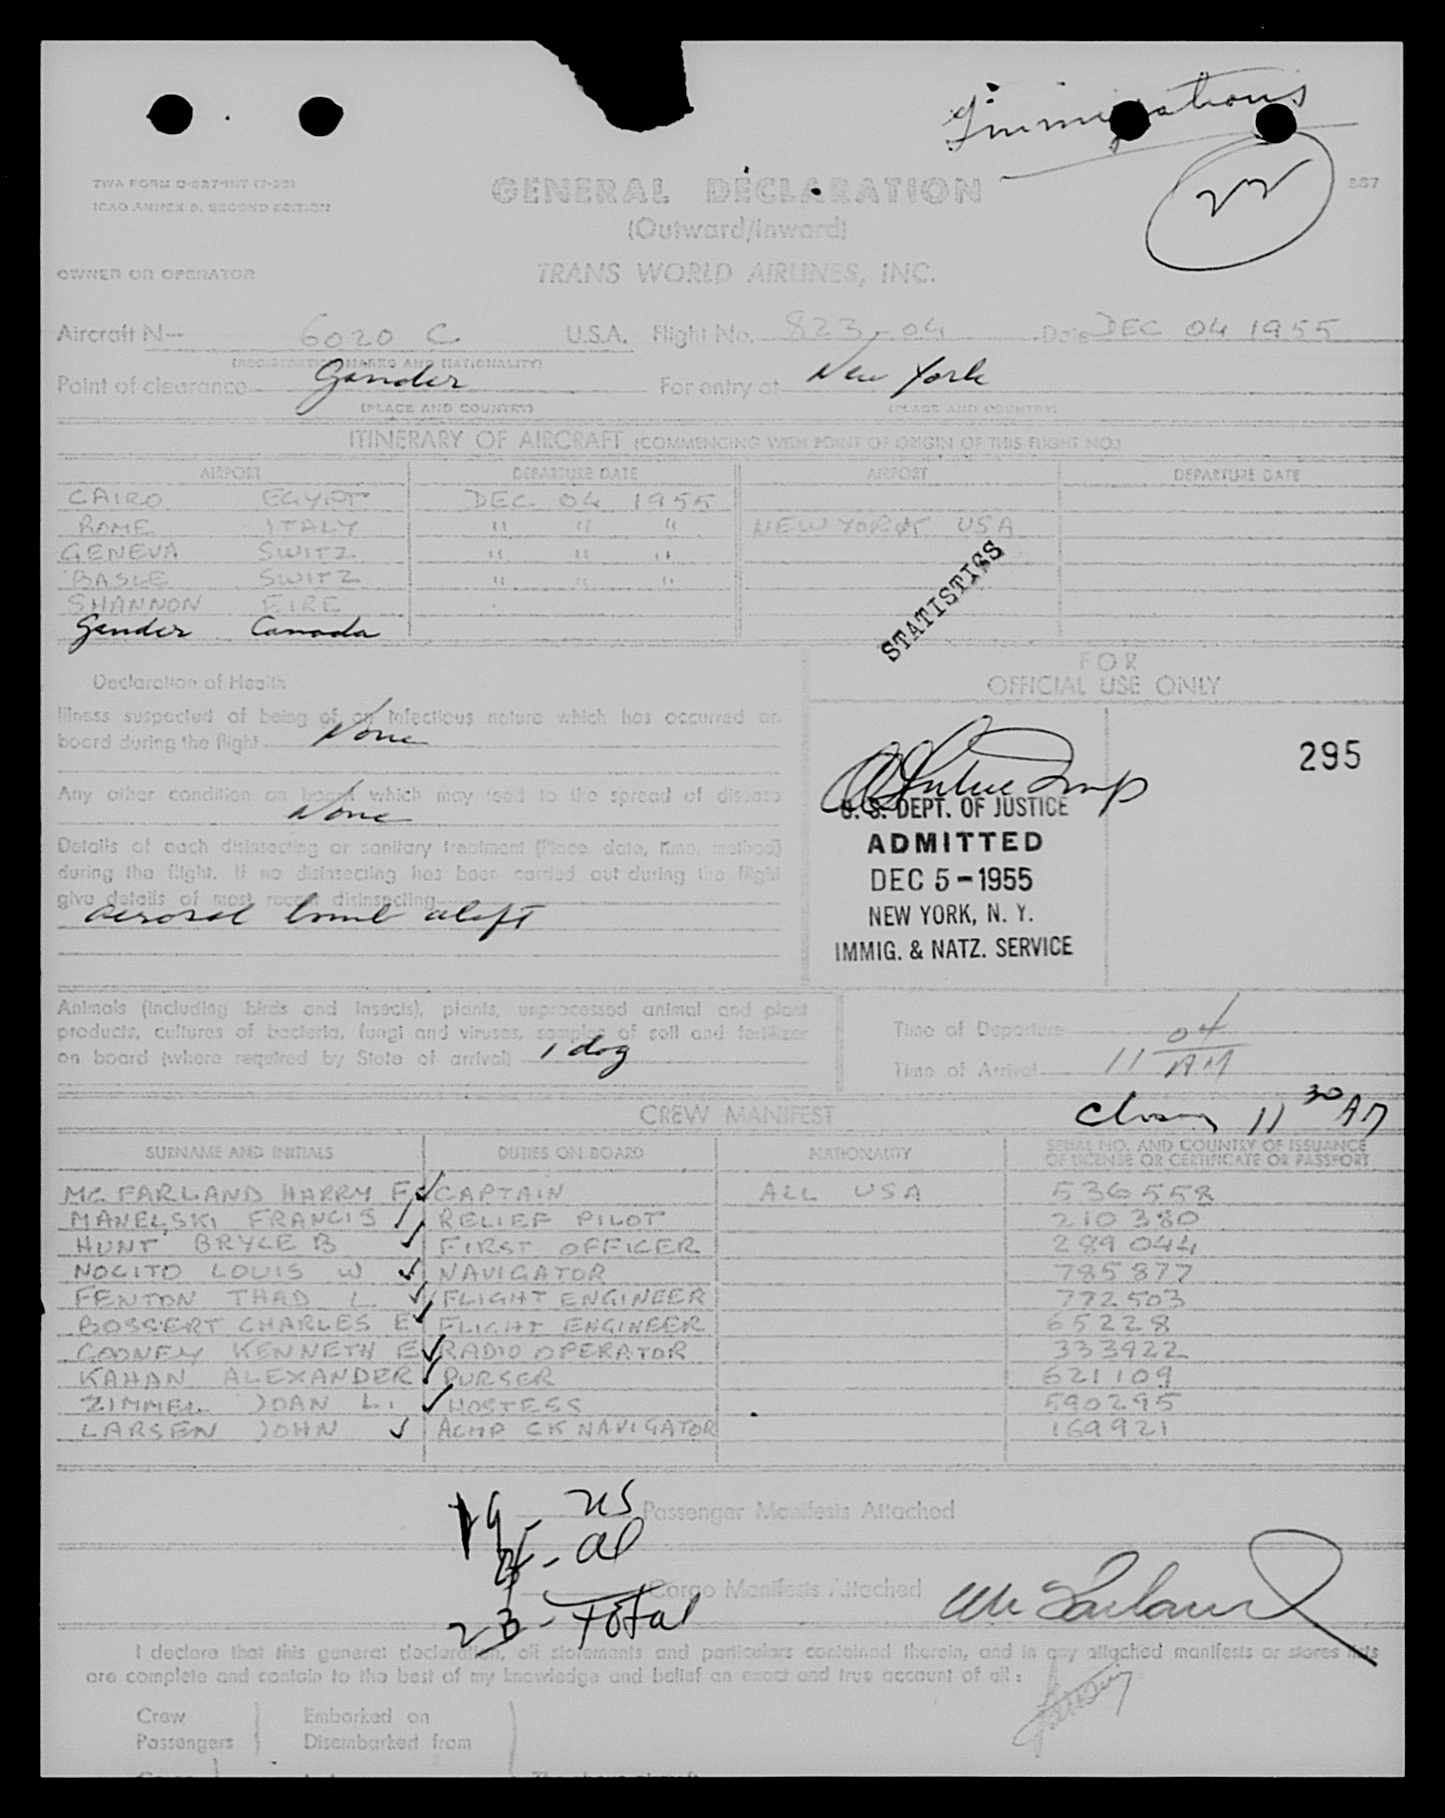 Immigrations
TWA FORM O-827-INT (7-55)
ICAO ANNEX 9, SECOND EDITION
GENERAL DECLARATION
(Outward/Inward)
22
OWNER OR OPERATOR TRANS WORLD AIRLINES, INC.
Aircraft N— 6020 C U.S.A. Flight No. 823-04 Date DEC 04 1955
(REGISTRATION MARKS AND NATIONALITY)
Point of clearance Gander For entry at New York
(PLACE AND COUNTRY) (PLACE AND COUNTRY)
ITINERARY OF AIRCRAFT (COMMENCING WITH POINT OF ORIGIN OF THIS FLIGHT NO.)
AIRPORT DEPARTURE DATE AIRPORT DEPARTURE DATE
CAIRO EGYPT DEC 04 1955
ROME ITALY " " " NEW YORK USA
GENEVA SWITZ " " "
BASLE SWITZ " " "
SHANNON EIRE
Gander Canada
STATISTICS
Declaration of Health
FOR
OFFICIAL USE ONLY
Illness suspected of being of an infectious nature which has occurred on
board during the flight None
295
Any other condition on board which may lead to the spread of disease
None
U. S. DEPT. OF JUSTICE
ADMITTED
DEC 5 - 1955
NEW YORK, N. Y.
IMMIG. & NATZ. SERVICE
Details of each disinsecting or sanitary treatment (Place, date, time, method)
during the flight. If no disinsecting has been carried out during the flight
give details of most recent disinsecting
aerosol bomb aloft
Animals (including birds and insects), plants, unprocessed animal and plant
products, cultures of bacteria, fungi and viruses, samples of soil and fertilizer
on board (where required by State of arrival) 1 dog
Time of Departure
Time of Arrival 11 04 AM
CREW MANIFEST
11 30 AM
SURNAME AND INITIALS DUTIES ON BOARD NATIONALITY SERIAL NO. AND COUNTRY OF ISSUANCE
OF LICENSE OR CERTIFICATE OR PASSPORT
MC FARLAND HARRY F CAPTAIN ALL USA 536558
MANELSKI FRANCIS RELIEF PILOT 210380
HUNT BRYCE B FIRST OFFICER 289044
NOCITO LOUIS W NAVIGATOR 785877
FENTON THAD L FLIGHT ENGINEER 772503
BOSSERT CHARLES E FLIGHT ENGINEER 65228
COONEY KENNETH E RADIO OPERATOR 333922
KAHAN ALEXANDER PURSER 621109
ZIMMEL JOAN L. HOSTESS 590295
LARSEN JOHN ACMP CK NAVIGATOR 169921
19 - US Passenger Manifests Attached
- al
Cargo Manifests Attached
23 - Total
McFarland
I declare that this general declaration, all statements and particulars contained therein, and in any attached manifests or stores lists
are complete and contain to the best of my knowledge and belief an exact and true account of all:
Crew Embarked on
Passengers Disembarked from